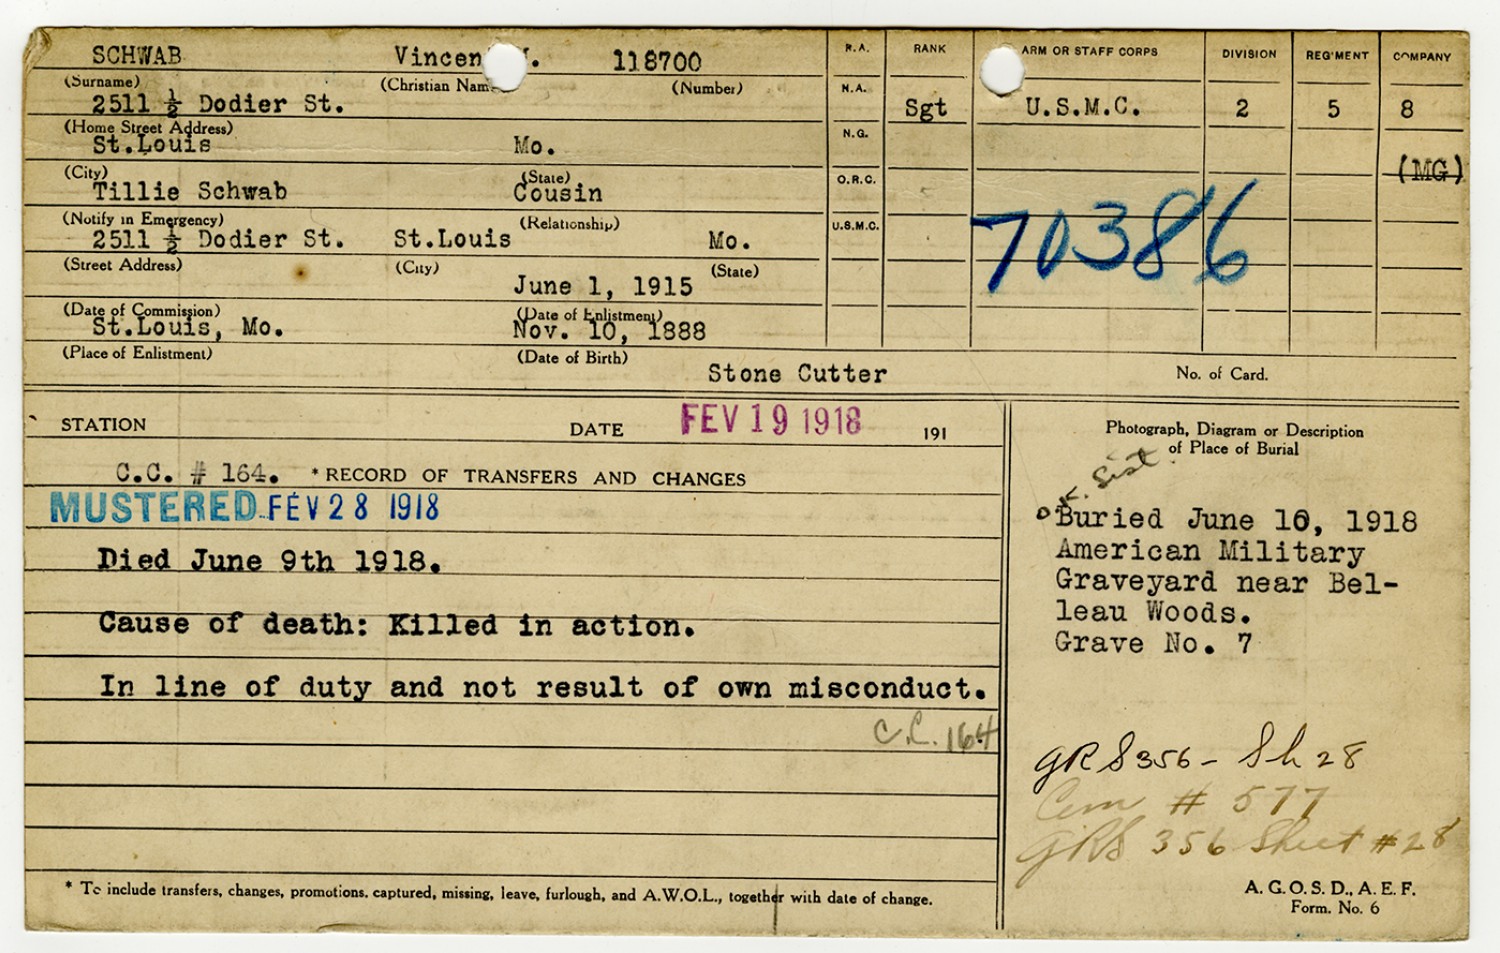 SCHWAB Vincen . 118700
(Surname) (Christian Nam (Number)
2511 ½ Dodier St.
(Home Street Address)
St.Louis Mo.
(City) (State)
Tillie Schwab Cousin
(Notify in Emergency) (Relationship)
2511 ½ Dodier St. St.Louis Mo.
(Street Address) (City) (State)
June 1, 1915
(Date of Commission) (Date of Enlistment)
St.Louis, Mo. Nov. 10, 1888
(Place of Enlistment) (Date of Birth)
Stone Cutter
R.A. RANK ARM OR STAFF CORPS DIVISION REG'MENT COMPANY
N.A. Sgt U.S.M.C. 2 5 8
N.G.
(MG)
O.R.C.
U.S.M.C.
70386
No. of Card.
STATION DATE FEV 19 1918 191
C.C. # 164. * RECORD OF TRANSFERS AND CHANGES
MUSTERED FEV 28 1918
Died June 9th 1918.
Cause of death: Killed in action.
In line of duty and not result of own misconduct.
C.C. 164
* To include transfers, changes, promotions. captured, missing, leave, furlough, and A.W.O.L., together with date of change.
Photograph, Diagram or Description
of Place of Burial
Buried June 10, 1918
American Military
Graveyard near Bel-
leau Woods.
Grave No. 7
GRS 356 - Sh 28
Cem # 577
GRS 356 Sheet #28
A. G. O. S. D., A. E. F.
Form. No. 6